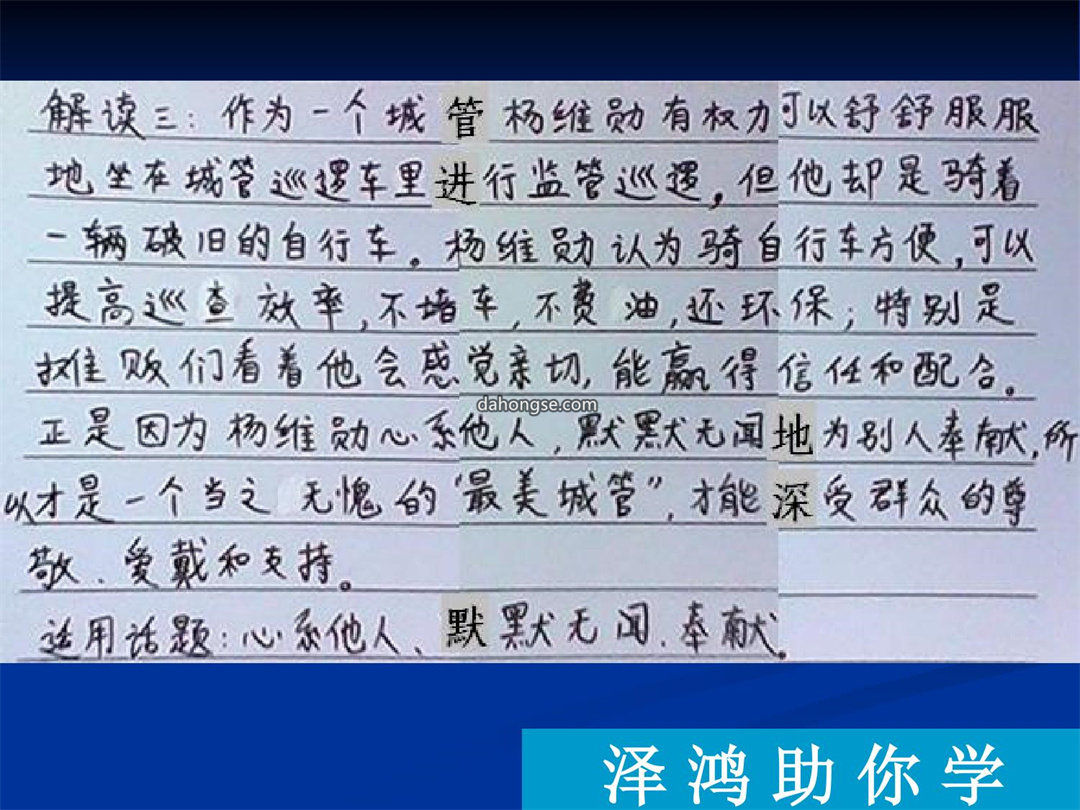 解读三：作为一个城管杨维勋有权力可以舒舒服服
地坐在城管巡逻车里进行监管巡逻，但他却是骑着
一辆破旧的自行车。杨维勋认为骑自行车方便，可以
提高巡查效率，不堵车，不费油，还环保；特别是
摊贩们看着他会感觉亲切，能赢得信任和配合。
dahongse.com
正是因为杨维勋心系他人，默默无闻地为别人奉献，所
以才是一个当之无愧的“最美城管”，才能深受群众的尊
敬、爱戴和支持。
适用话题：心系他人、默默无闻、奉献。
泽鸿助你学